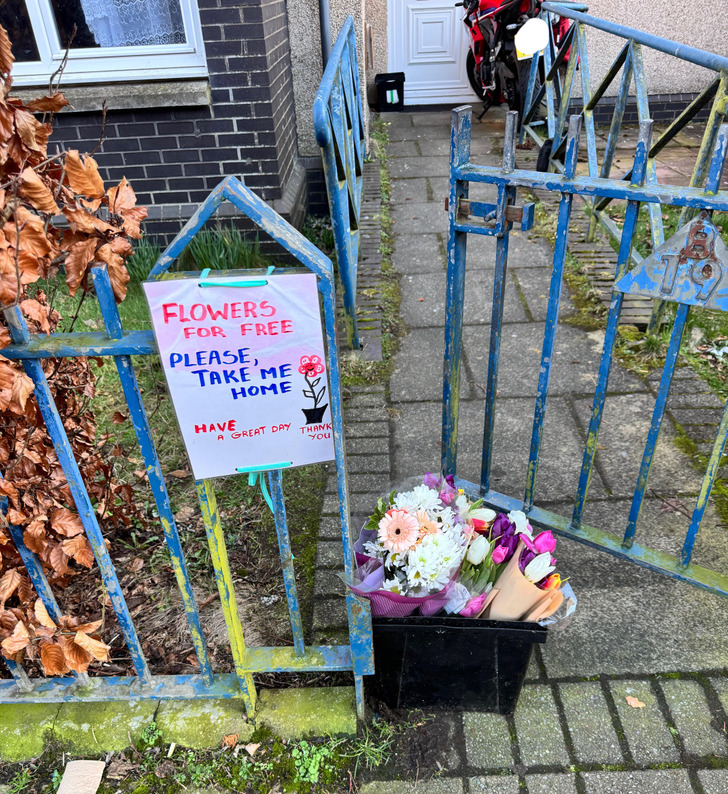 FLOWERS
FOR FREE
PLEASE,
TAKE ME
HOME
HAVE
A GREAT DAY
THANK
YOU
19